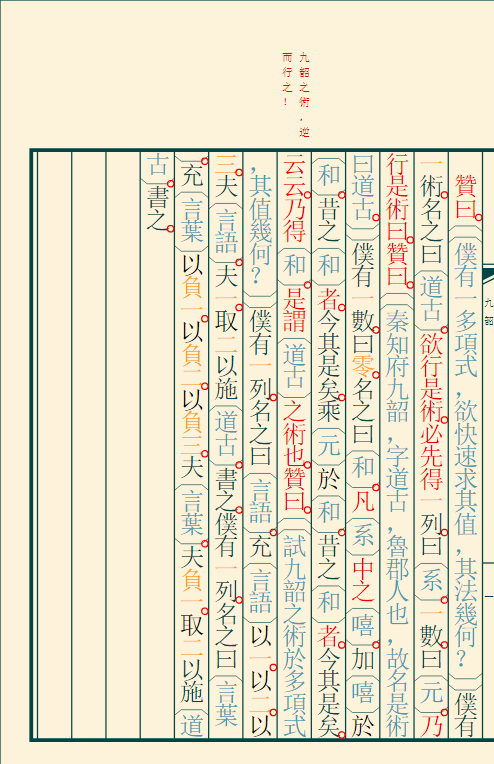 九韶之術，逆
而行之！
九韶
一
贊曰。僕有一多項式，欲快速求其值，其法幾何？僕有
一術。名之曰道古。欲行是術。必先得一列曰系。一數。曰元乃
行是術曰。贊曰。秦知府九韶，字道古，魯郡人也，故名是術
曰道古。僕有一數。曰零。名之曰和。凡系中之嘻。加嘻於
和。昔之和者。今其是矣。乘元於和。昔之和者。今其是矣。
云云。乃得和。是謂道古之術也。贊曰。試九韶之術於多項式
，其值幾何？僕有一列。名之曰言語。充言語以一。以二。以
三。夫言語夫一。取二以施道古。書之。僕有一列。名之曰言葉
。充言葉以負一。以負二。以負三。夫言葉夫負一。取二以施道
古。書之。